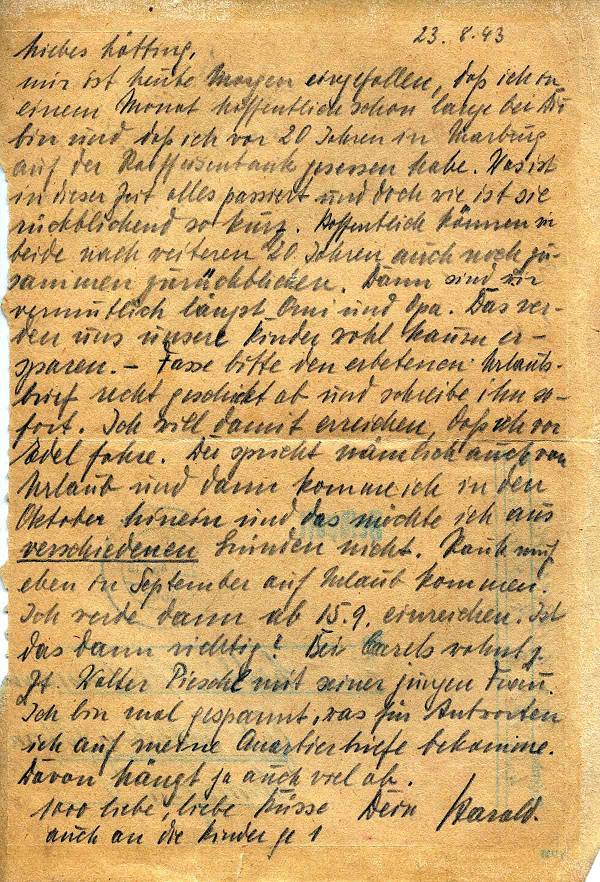 23.8.43
Liebes
mir ist heute Morgen eingefallen, daß ich in
einem Monat hoffentlich schon lange bei Dir
bin und daß ich vor 20 Jahren in Marburg
auf der Raiffeisenbank gesessen habe. Was ist
in dieser Zeit alles passiert und doch wie ist sie
rückblickend so kurz. Hoffentlich können wir
beide nach weiteren 20 Jahren auch noch zu-
sammen zurückblicken. Dann sind wir
vermutlich längst Omi und Opa. Das wer-
den uns unsere Kinder wohl kaum er-
sparen. – Fasse bitte den erbetenen Urlaubs-
brief recht geschickt ab und schreibe ihn so-
fort. Ich will damit erreichen, daß ich vor
Edel fahre. Der spricht nämlich auch von
Urlaub und dann komme ich in den
Oktober hinein und das möchte ich aus
verschiedenen Gründen nicht. muß
eben im September auf Urlaub kommen.
Ich werde dann ab 15.9. einreichen. Ist
das dann richtig? Bei wohnt z.
Zt. Walter mit seiner jungen Frau.
Ich bin mal gespannt, was für Antworten
ich auf meine Quartierbriefe bekomme.
Davon hängt ja auch viel ab.
1000 liebe, liebe Küsse Dein Harald.
auch an die Kinder je 1